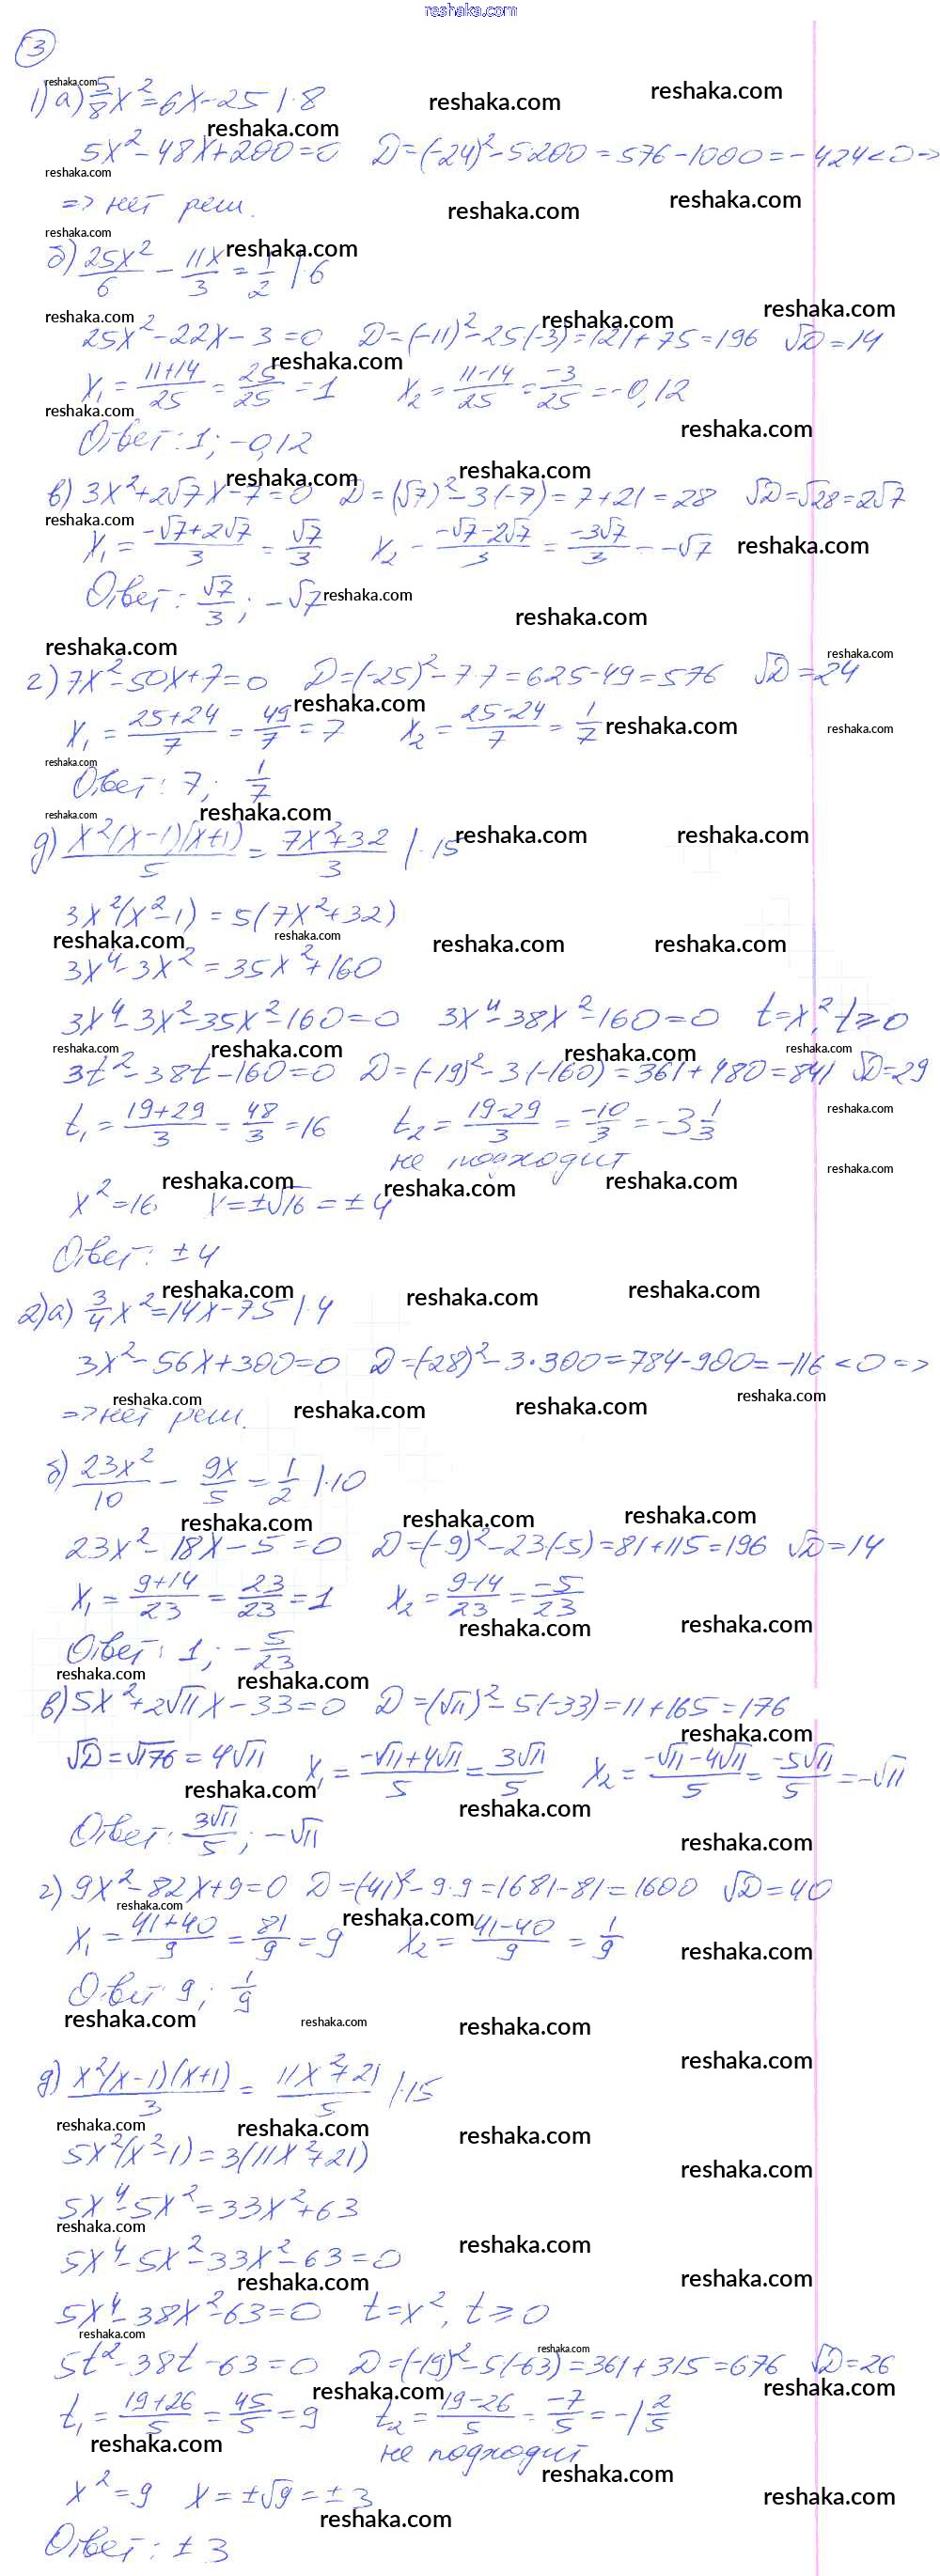 reshaka.com
3
1) а) 5/8 x² = 6x - 25 | · 8
5x² - 48x + 200 = 0 D = (-24)² - 5 200 = 576 - 1000 = -424 < 0 =>
=> нет реш.
б) 25x²/6 - 11x/3 = 1/2 | · 6
25x² - 22x - 3 = 0 D = (-11)² - 25(-3) = 121 + 75 = 196 √D = 14
x₁ = (11+14)/25 = 25/25 = 1 x₂ = (11-14)/25 = -3/25 = -0,12
Ответ: 1; -0,12
в) 3x² + 2√7x - 7 = 0 D = (√7)² - 3(-7) = 7 + 21 = 28 √D = √28 = 2√7
x₁ = (-√7+2√7)/3 = √7/3 x₂ = (-√7-2√7)/3 = -3√7/3 = -√7
Ответ: √7/3; -√7
г) 7x² - 50x + 7 = 0 D = (-25)² - 7·7 = 625 - 49 = 576 √D = 24
x₁ = (25+24)/7 = 49/7 = 7 x₂ = (25-24)/7 = 1/7
Ответ: 7; 1/7
д) x²(x-1)(x+1)/5 = (7x²+32)/3 | · 15
3x²(x²-1) = 5(7x²+32)
3x⁴ - 3x² = 35x² + 160
3x⁴ - 3x² - 35x² - 160 = 0 3x⁴ - 38x² - 160 = 0 t = x², t ≥ 0
3t² - 38t - 160 = 0 D = (-19)² - 3(-160) = 361 + 480 = 841 √D = 29
t₁ = (19+29)/3 = 48/3 = 16 t₂ = (19-29)/3 = -10/3 = -3 1/3
не подходит
x² = 16 x = ±√16 = ±4
Ответ: ±4
2) а) 3/4 x² = 14x - 75 | · 4
3x² - 56x + 300 = 0 D = (-28)² - 3·300 = 784 - 900 = -116 < 0 =>
=> нет реш.
б) 23x²/10 - 9x/5 = 1/2 | · 10
23x² - 18x - 5 = 0 D = (-9)² - 23(-5) = 81 + 115 = 196 √D = 14
x₁ = (9+14)/23 = 23/23 = 1 x₂ = (9-14)/23 = -5/23
Ответ: 1; -5/23
в) 5x² + 2√11x - 33 = 0 D = (√11)² - 5(-33) = 11 + 165 = 176
√D = √176 = 4√11 x₁ = (-√11+4√11)/5 = 3√11/5 x₂ = (-√11-4√11)/5 = -5√11/5 = -√11
Ответ: 3√11/5; -√11
г) 9x² - 82x + 9 = 0 D = (-41)² - 9·9 = 1681 - 81 = 1600 √D = 40
x₁ = (41+40)/9 = 81/9 = 9 x₂ = (41-40)/9 = 1/9
Ответ 9; 1/9
д) x²(x-1)(x+1)/3 = (11x²+21)/5 | · 15
5x²(x²-1) = 3(11x²+21)
5x⁴ - 5x² = 33x² + 63
5x⁴ - 5x² - 33x² - 63 = 0
5x⁴ - 38x² - 63 = 0 t = x², t ≥ 0
5t² - 38t - 63 = 0 D = (-19)² - 5(-63) = 361 + 315 = 676 √D = 26
t₁ = (19+26)/5 = 45/5 = 9 t₂ = (19-26)/5 = -7/5 = -1 2/5
не подходит
x² = 9 x = ±√9 = ±3
Ответ: ±3